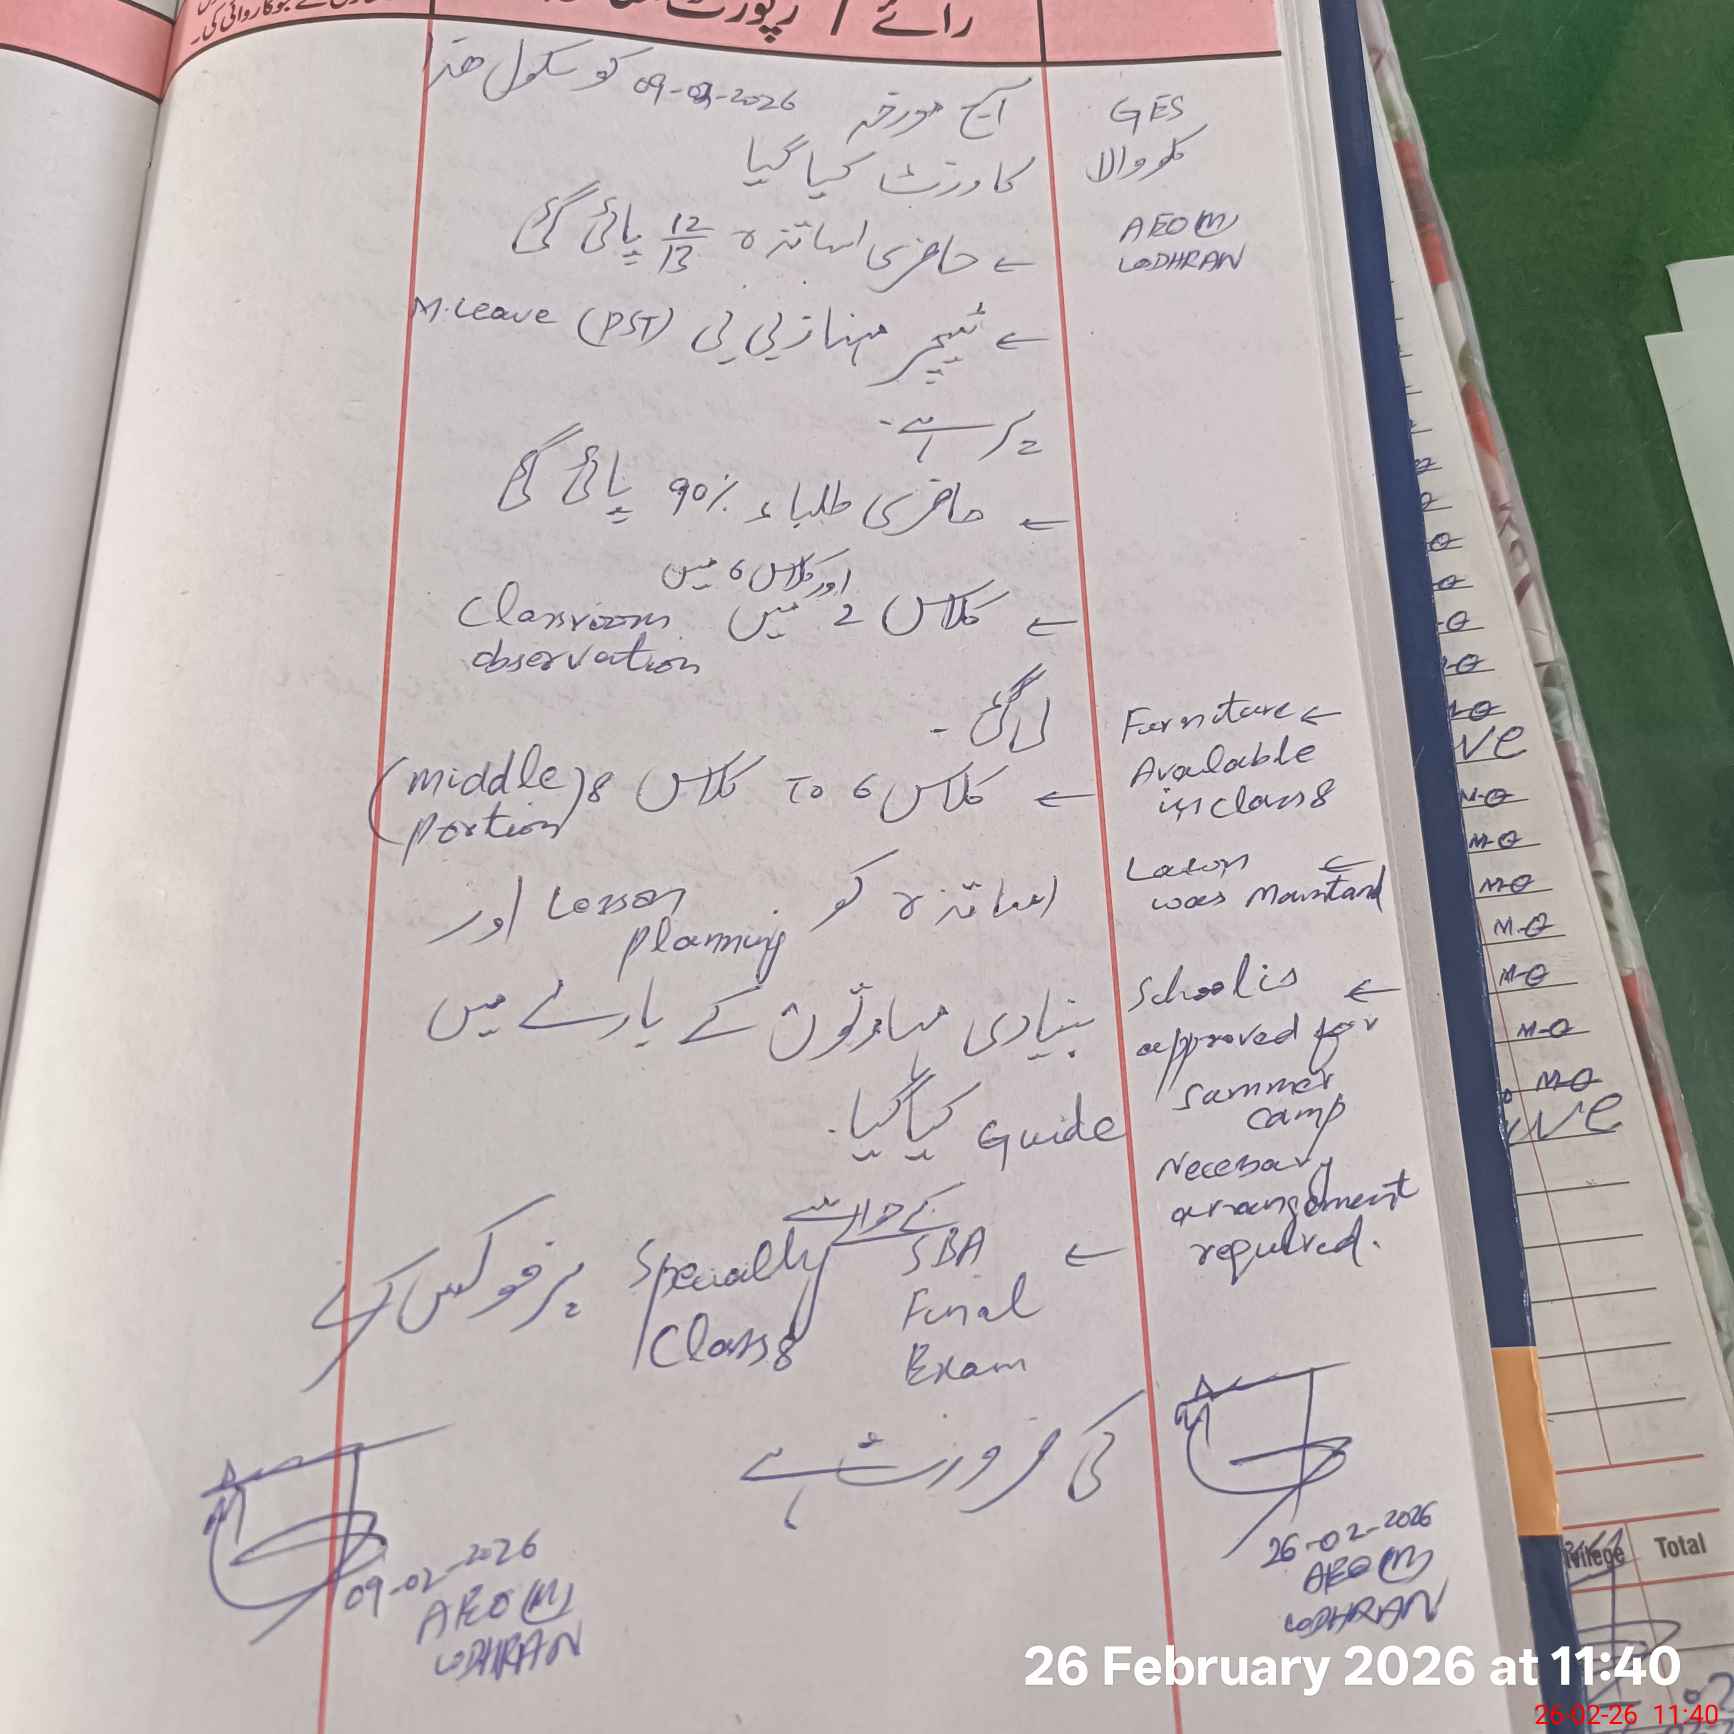 رائے / رپورٹ
GES
AEO (M)
LODHRAN
آج مورخہ 09-02-2026 کو سکول ھذا
کا وزٹ کیا گیا
← حاضری اساتذہ 12/13 پائی گئی
← ٹیچر مہناز بی بی (PST) M.Leave
پر ہے۔
← حاضری طلباء 90% پائی گئی
اور کلاس 6 میں
← کلاس 2 میں Classroom
observation
لی گئی ۔
← کلاس 6 To کلاس 8 (middle
portion)
اساتذہ کو Lesson planning اور
بنیادی مہارتوں کے بارے میں
Guide کیا گیا۔
کے حوالے سے
← SBA Final Exam Specially Class 8 پر فوکس کرنے
کی ضرورت ہے
09-02-2026
AEO (M)
LODHRAN
Furniture ←
Available
in class 8
Lawn ←
was Maintand
School is ←
approved for
Summer
Camp
Necessary
arrangement
required.
26-02-2026
AEO (M)
LODHRAN
Total
26 February 2026 at 11:40
26-02-26 11:40